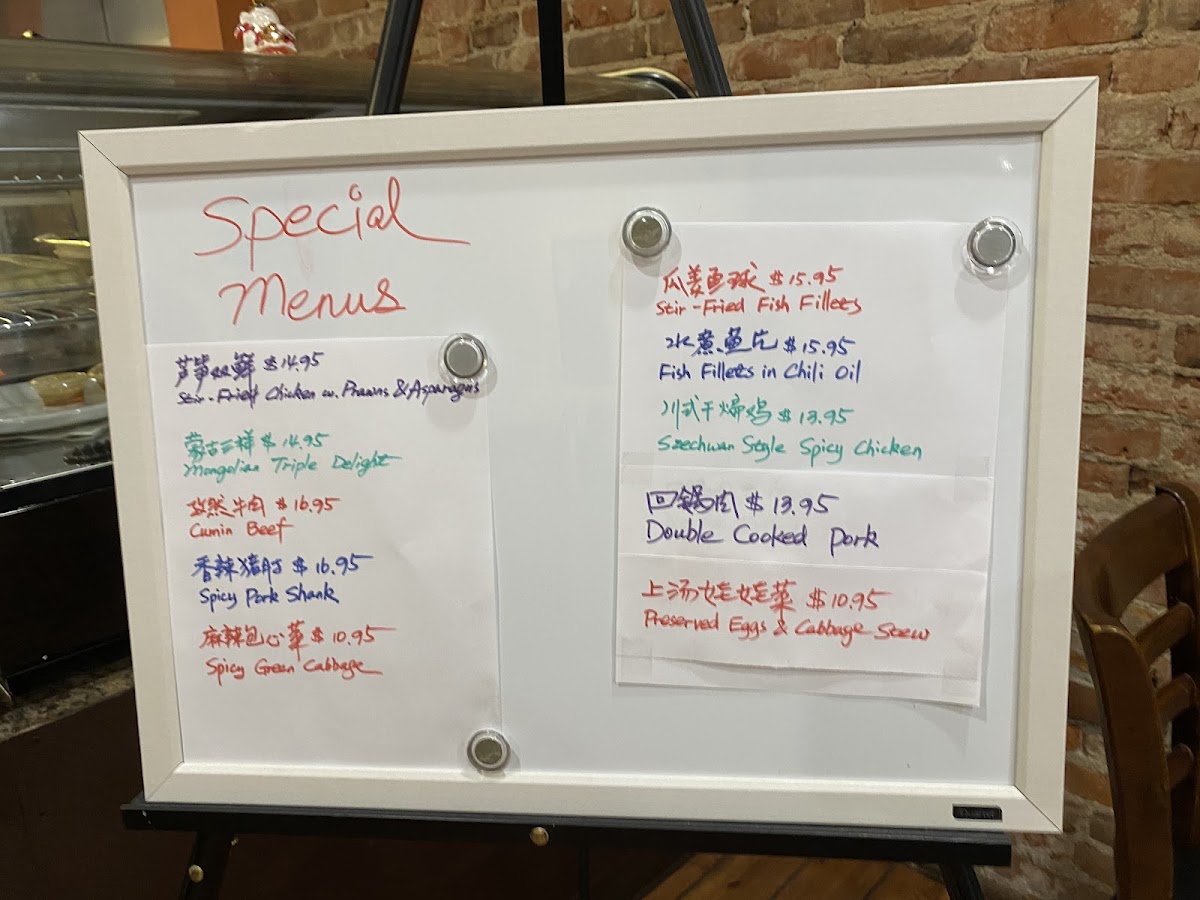 Special
Menus
芦笋双鲜 $14.95
Stir-Fried Chicken w. Prawns & Asparagus
蒙古三样 $14.95
Mongolian Triple Delight
孜然牛肉 $16.95
Cumin Beef
香辣猪肘 $16.95
Spicy Pork Shank
麻辣包心菜 $10.95
Spicy Green Cabbage
瓜姜鱼球 $15.95
Stir-Fried Fish Fillets
水煮鱼片 $15.95
Fish Fillets in Chili Oil
川式干煸鸡 $13.95
Szechwan Style Spicy Chicken
回锅肉 $13.95
Double Cooked Pork
上汤娃娃菜 $10.95
Preserved Eggs & Cabbage Stew